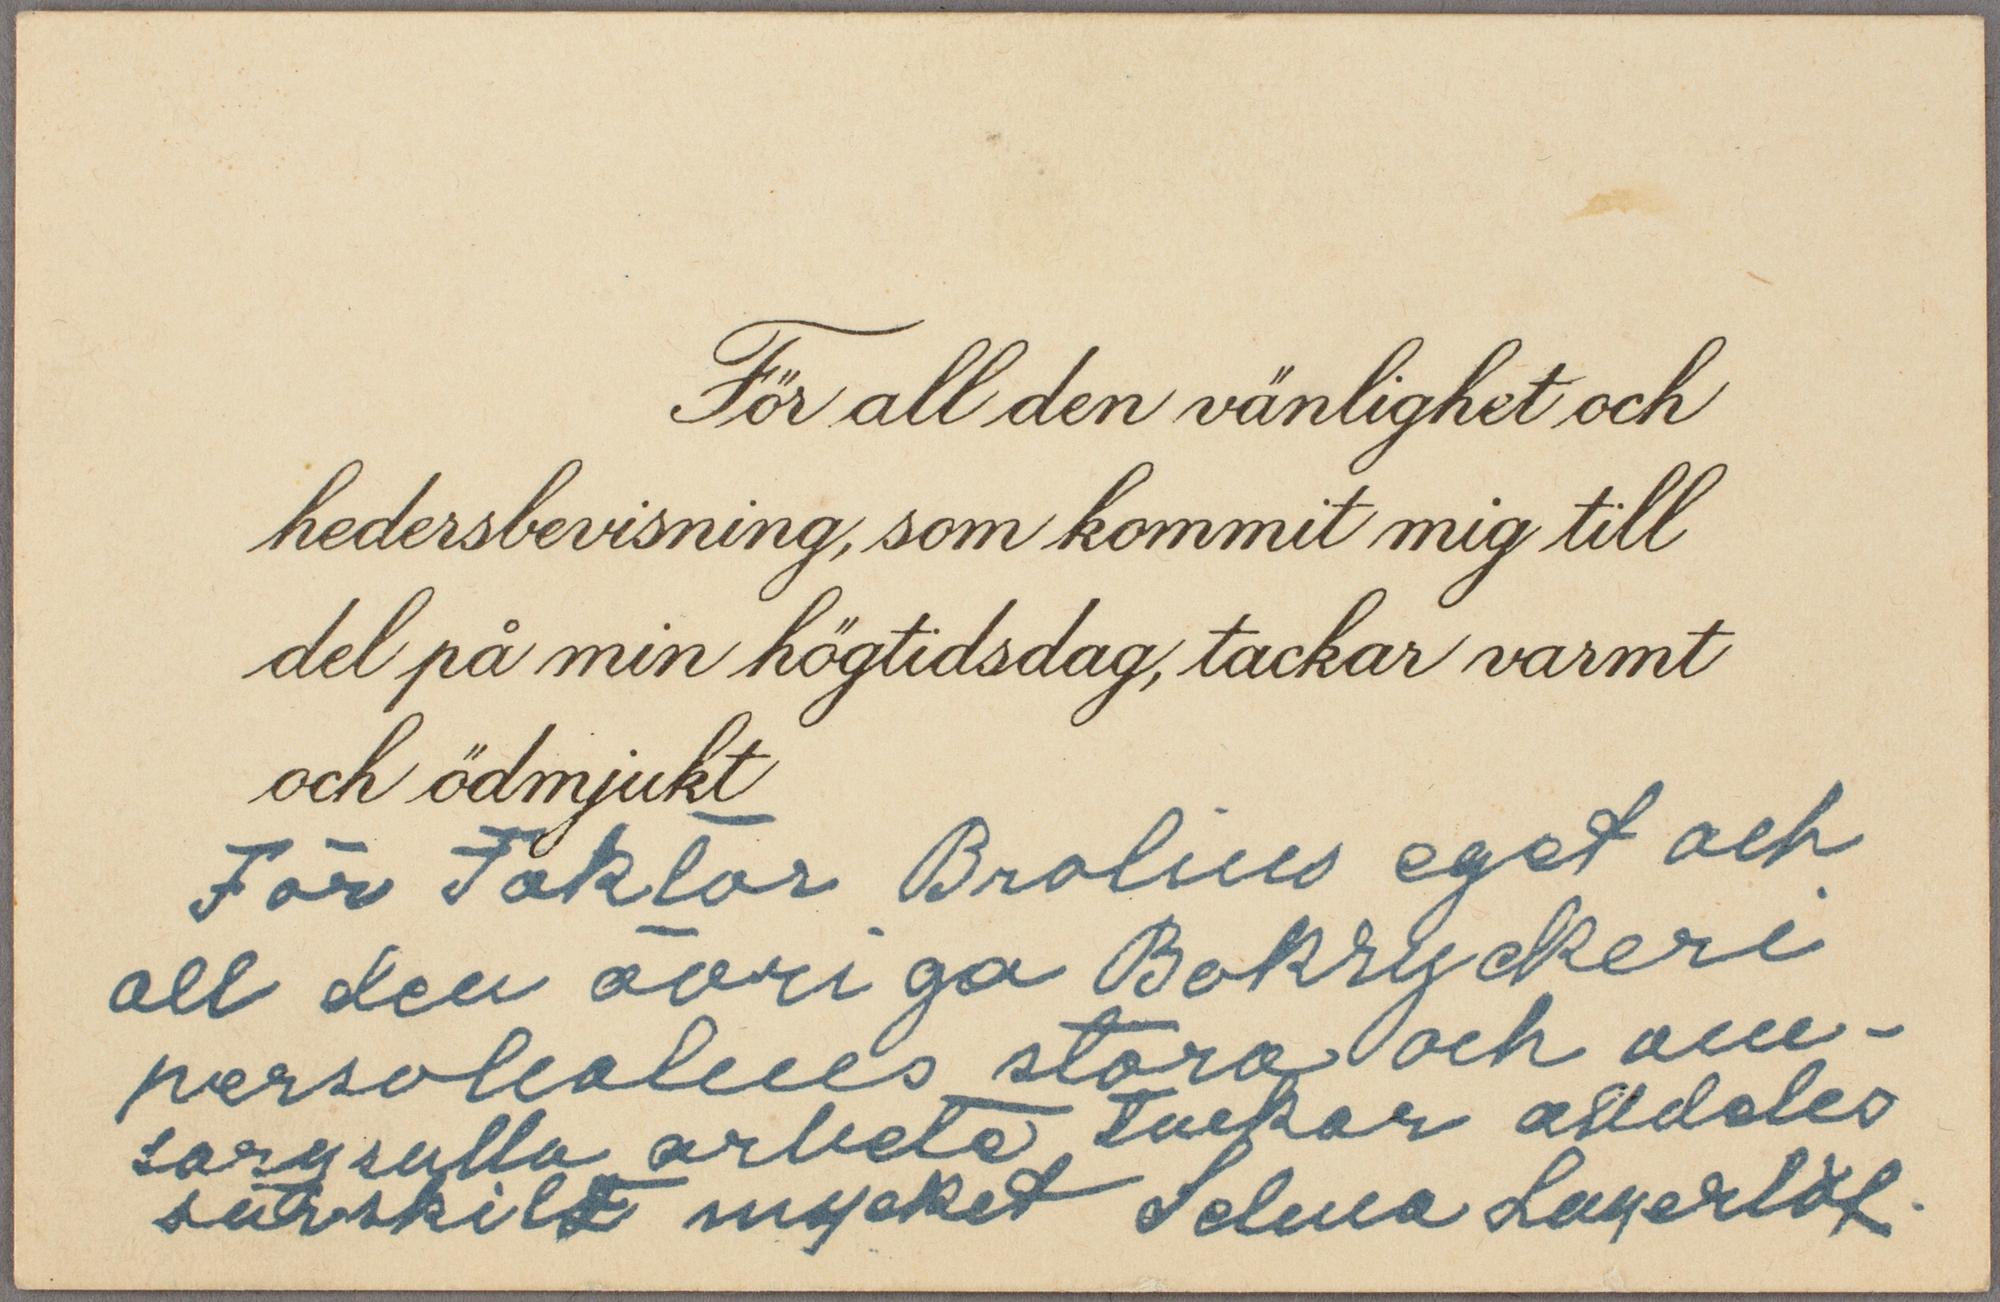 För all den vänlighet och
hedersbevisning, som kommit mig till
del på min högtidsdag, tackar varmt
och ödmjukt
För Faktor Brolins eget och
all den övriga Bokryckeri
personalens stora och om-
sorgsulla arbete tackar alldeles
särskilt mycket Selma Lagerlöf.